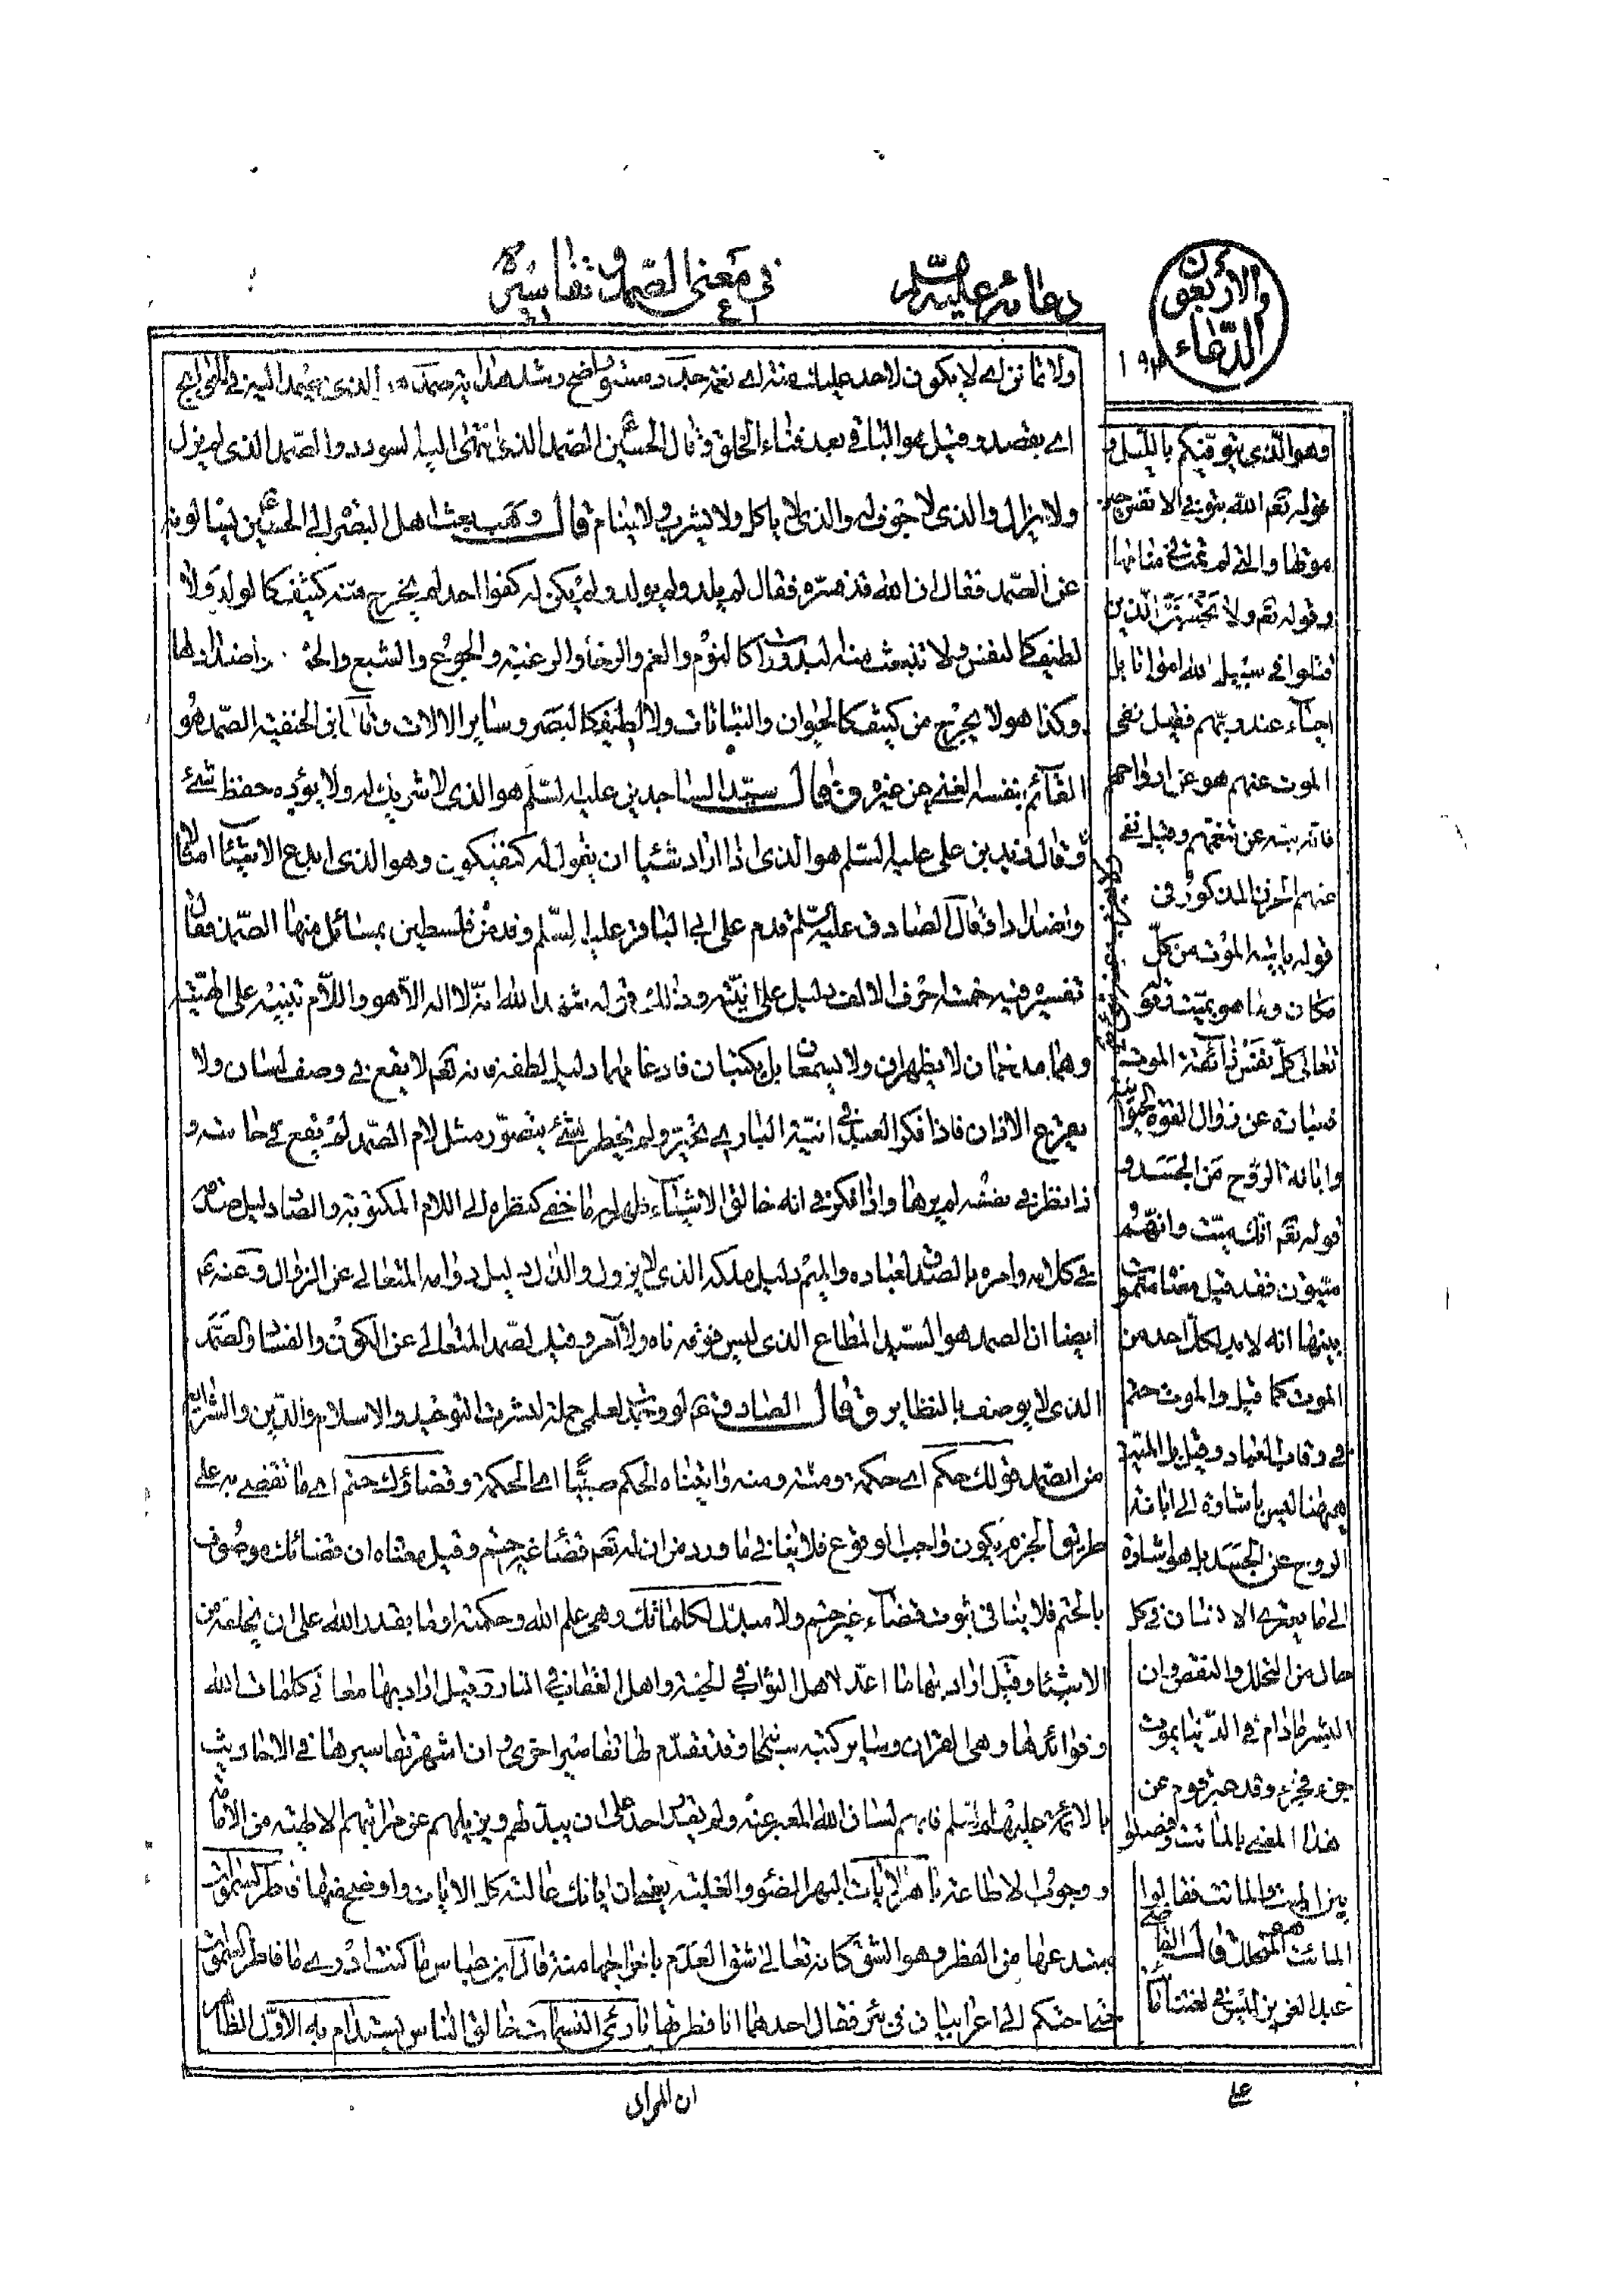 والأربعون
الدعاء
دعائه عليه السلم
في معنى الصمد وتفاسيره
١٩٣
اي يقصد وقيل هو الباقي بعد فناء الخلق وقال الحسين ع الصمد الذي انتهى اليه السودد والصمد الذي لم يزل
ولا يزال والذي لا جوف له والذي لا ياكل ولا يشرب ولا ينام قال وهب بعث اهل البصرة الى الحسين ع يسالونه
عن الصمد فقال ان الله قد فسره فقال لم يلد ولم يولد ولم يكن له كفوا احد لم يخرج منه كثيف كالولد ولا
لطيف كالنفس ولا تنبعث منه البدوات كالنوم والغم والرجاء والرغبة والجوع والشبع
وكذا هو لا يخرج من كثيف كالحيوان والنباتات ولا لطيف كالبصر وساير الالات وقال ابن الحنفية الصمد هو
القائم بنفسه الغني عن غيره وقال سيد الساجدين عليه السلم هو الذي لا شريك له ولا يؤده حفظ شئ
وقال زيد بن علي عليه السلم هو الذي اذا اراد شيئا ان يقول له كن فيكون وهو الذي ابدع الاشياء امثالا
واضدادا وقال الصادق عليه السلم قدم على ابي الباقر عليه السلم وفد من فلسطين بمسائل منها الصمد فقال
تفسيره فيه خمسة احرف الالف دليل على انيته وذلك قوله شهد الله انه لا اله الا هو واللام تنبيه على الهيته
وهما مدغمان لا يظهران ولا يسمعان بل يكتبان فادغامهما دليل لطفه فانه تعم لا يقع في وصف لسان ولا
يقرع الاذان فاذا فكر العبد في انية الباري تحير ولم يخطر شئ يتصور مثل لام الصمد لم يقع في حاسته و
اذا نظر في نفسه لم يرها واذا فكر في انه خالق الاشياء ظهر له ما خفي كنظره الى اللام المكتوبة والصاد دليل صدقه
في كلامه وامره بالصدق لعباده والميم دليل ملكه الذي لا يزول والدال دليل دوامه المتعالي عن الزوال وعنه ع
ايضا ان الصمد هو السيد المطاع الذي ليس فوقه ناه ولا آمر وقيل الصمد المتعالي عن الكون والفساد والصمد
الذي لا يوصف بالنظاير وقال الصادق ع لو وجدت لعلمي حملة لنشرت التوحيد والاسلام والدين والشرايع
من الصمد قولك حكم اي حكمة ومنه واتيناه الحكم صبيا اي الحكمة وقضاؤك حتم اي ما تقضي به على
طريق الجزم يكون واجب الوقوع فلا ينافي ما ورد من ان له تعم قضاء غير حتم وقيل معناه ان قضائك موصوف
بالحتم فلا ينافي ثبوت قضاء غير حتم ولا مبدل لكلماتك وهي علم الله وحكمته او ما يقدر الله على ان يخلقه من
الاشياء وقيل اراد بها ما اعد لاهل الثواب في الجنة واهل العقاب في النار وقيل اراد بها معاني كلمات الله
وفوائدها وهي القران وساير كتبه سبحانه وقد تقدم لها تفاسير اخرى وان اشهر تفاسيرها في الاحاديث
بالائمة عليهم السلم فانهم لسان الله المعبر عنه ولم يقدر احد على ان يبدلهم ويزيلهم عن مراتبهم الالهية من الامامة
ووجوب الاطاعة باهر الايات البهر الضوء والغلبة يعني ان اياتك غالبة كل الايات واوضح منها فاطر السموات
مبتدعها من الفطر وهو الشق كانه تعالى شق العدم باخراجها منه قال ابن عباس ما كنت ادري ما فاطر السموات
حتى احتكم الي اعرابيان في بئر فقال احدهما انا فطرتها بارئ النسمات خالق الناس
ان المراد
وهو الذي يتوفيكم بالليل و
قوله تعم الله يتوفى الانفس حين
موتها والتي لم تمت في منامها
وقوله تعم ولا تحسبن الذين
قتلوا في سبيل الله امواتا بل
احياء عند ربهم فقيل نفي
الموت عنهم هو عن ارواحهم
فانه نبه عن تنعمهم وقيل نفي
عنهم الحزن المذكور في
قوله ياتيه الموت من كل
مكان وما هو بميت وقوله
تعالى كل نفس ذائقة الموت
عبارة عن زوال القوة الحيوانية
وابانة الروح من الجسد و
قوله تعم انك ميت وانهم
ميتون فقد قيل معناه ستموت
تنبيها انه لا بد لكل احد من
الموت كما قيل والموت حتم
في رقاب العباد وقيل بل الميت
ههنا ليس باشارة الى ابانة
الروح عن الجسد بل هو اشارة
الى ما يعتري الانسان في كل
حال من التحلل والنقص وان
البشر ما دام في الدنيا يموت
جزء فجزء وقد عبر قوم عن
هذا المعنى بالمائت وفصلوا
بين الميت والمائت فقالوا
المائت هو المتحلل قال القاضي
عبد العزيز ليس في لغتنا
على